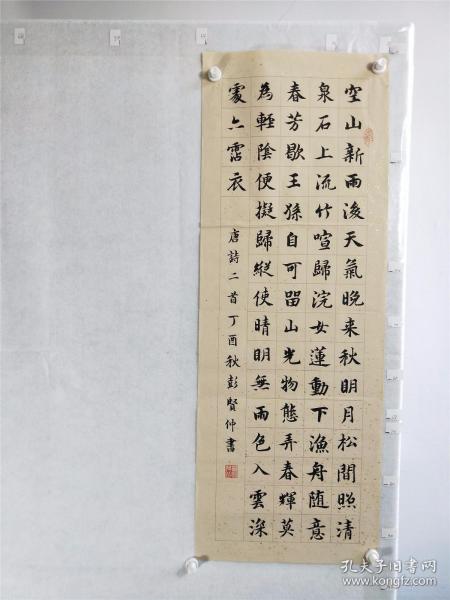 空山新雨後天氣晚来秋明月松間照清
泉石上流竹喧歸浣女蓮動下漁舟随意
春芳歇王孫自可留山光物態弄春輝莫
為輕陰便擬歸縱使晴明無雨色入雲深
處亦霑衣
唐詩二首丁酉秋彭賢仲書
孔夫子旧书网
www.kongfz.com